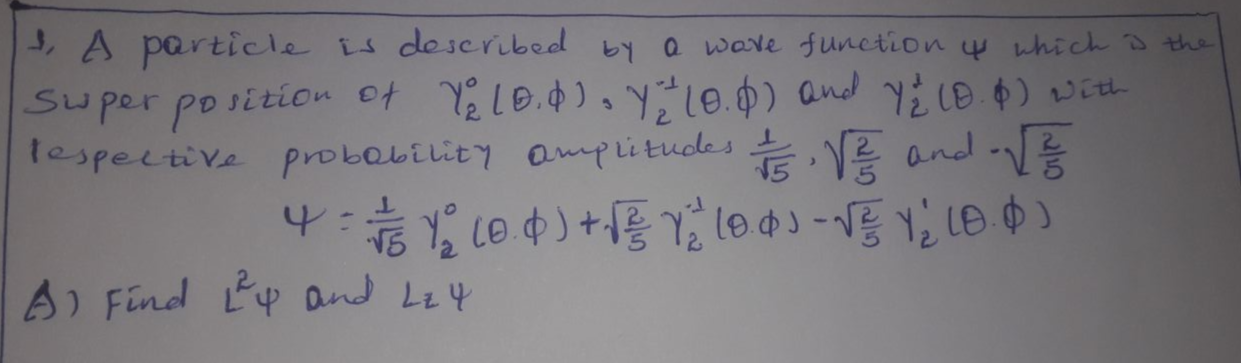 1, A particle is described by a wave function ψ which is the
Super position of Y₂⁰(θ.ϕ), Y₂⁻¹(θ.ϕ) and Y₂¹(θ.ϕ) with
respective probability amplitudes 1/√5, √(2/5) and -√(2/5)
ψ = 1/√5 Y₂⁰(θ.ϕ) + √(2/5) Y₂⁻¹(θ.ϕ) - √(2/5) Y₂¹(θ.ϕ)
A) Find L²ψ and Lzψ